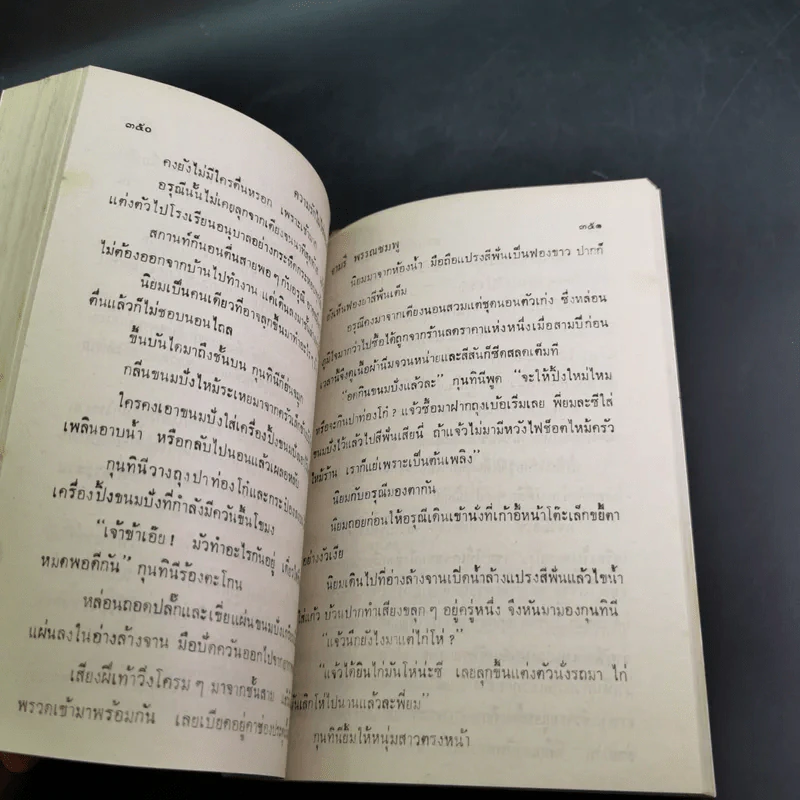 ๓๕๐
ความรัก
คงยังไม่มีใครตื่นหรอก เพราะเช้ามาก
อรุณีนั้นไม่เคยลุกจากเตียงจนนาทีสุดท้าย
แต่งตัวไปโรงเรียนอนุบาลอย่างกระหืดกระหอบ
สกานท์ก็นอนตื่นสายพอๆ กับอรุณี
ไม่ต้องออกจากบ้านไปทำงาน แต่เดินลงมาชั้น
นิยมเป็นคนเดียวที่อาจลุกขึ้นมาทำ
ตื่นแล้วก็ไม่ชอบนอนไถล
ขึ้นบันไดมาถึงชั้นบน กุนทินีก็ย่นจมูก
กลิ่นขนมปังไหม้ระเหยมาจากครัวเล็ก
ใครคงเอาขนมปังใส่เครื่องปิ้งขนมปัง
เพลินอาบน้ำ หรือกลับไปนอนแล้วเผลอหลับ
กุนทินีวางถุงปาท่องโก๋และกระป๋อง
เครื่องปิ้งขนมปังที่กำลังมีควันขึ้นโขมง
“เจ้าข้าเอ๊ย! มัวทำอะไรกันอยู่
หมดพอดีกัน” กุนทินีร้องตะโกน
หล่อนถอดปลั๊กและเขี่ยแผ่นขนมปัง
แผ่นลงในอ่างล้างจาน มือปัดควันออกไปจาก
เสียงฝีเท้าวิ่งโครมๆ มาจากชั้นสาม
พรวดเข้ามาพร้อมกัน เลยเบียดอยู่คาช่องประตู
พรรณชมพู ๓๕๑
นิยมมาจากห้องน้ำ มือถือแปรงสีฟันเป็นฟองขาว ปากก็
ยาสีฟันเต็ม
อรุณีคงมาจากเตียงนอนสวมแต่ชุดนอนตัวเก่ง ซึ่งหล่อน
ภูมิใจมากว่าไปซื้อได้ถูกจากร้านลดราคาแห่งหนึ่งเมื่อสามปีก่อน
เวลานี้จึงดูเนื้อผ้านิ่มจวนหน่ายและสีสันก็ซีดสลดเต็มที
“อดกินขนมปังแล้วละ” กุนทินีพูด “จะให้ปิ้งใหม่ไหม
หรือจะกินปาท่องโก๋? แจ๋วซื้อมาฝากถุงเบ้อเริ่มเลย พี่ยมละซีใส่
ขนมปังไว้แล้วไปสีฟันเสียนี่ ถ้าแจ๋วไม่มามีหวังไฟช็อตไหม้ครัว
ไหม้ร้าน เราก็แย่เพราะเป็นต้นเพลิง”
นิยมกับอรุณีมองตากัน
นิยมถอยก่อนให้อรุณีเดินเข้านั่งที่เก้าอี้หน้าโต๊ะเล็กขยี้ตา
อย่างงัวเงีย
นิยมเดินไปที่อ่างล้างจานเปิดน้ำล้างแปรงสีฟันแล้วไขน้ำ
ใส่แก้ว บ้วนปากทำเสียงขลุกๆ อยู่ครู่หนึ่ง จึงหันมามองกุนทินี
“แจ๋วนึกยังไงมาแต่ไก่โห่?”
“แจ๋วได้ยินไก่มันโห่น่ะซี เลยลุกขึ้นแต่งตัวนั่งรถมา ไก่
มันเลิกโห่ไปนานแล้วละพี่ยม”
กุนทินียิ้มให้หนุ่มสาวตรงหน้า